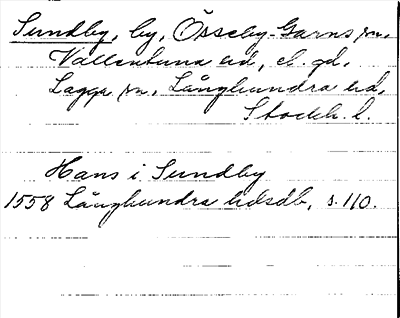 Sundby, by, Össeby-Garns sn,
Vallentuna hd, el. gd,
Lagga sn, Långhundra hd,
Stockh. l.
Hans i Sundby
1558 Långhundra hdsdb, s. 110.